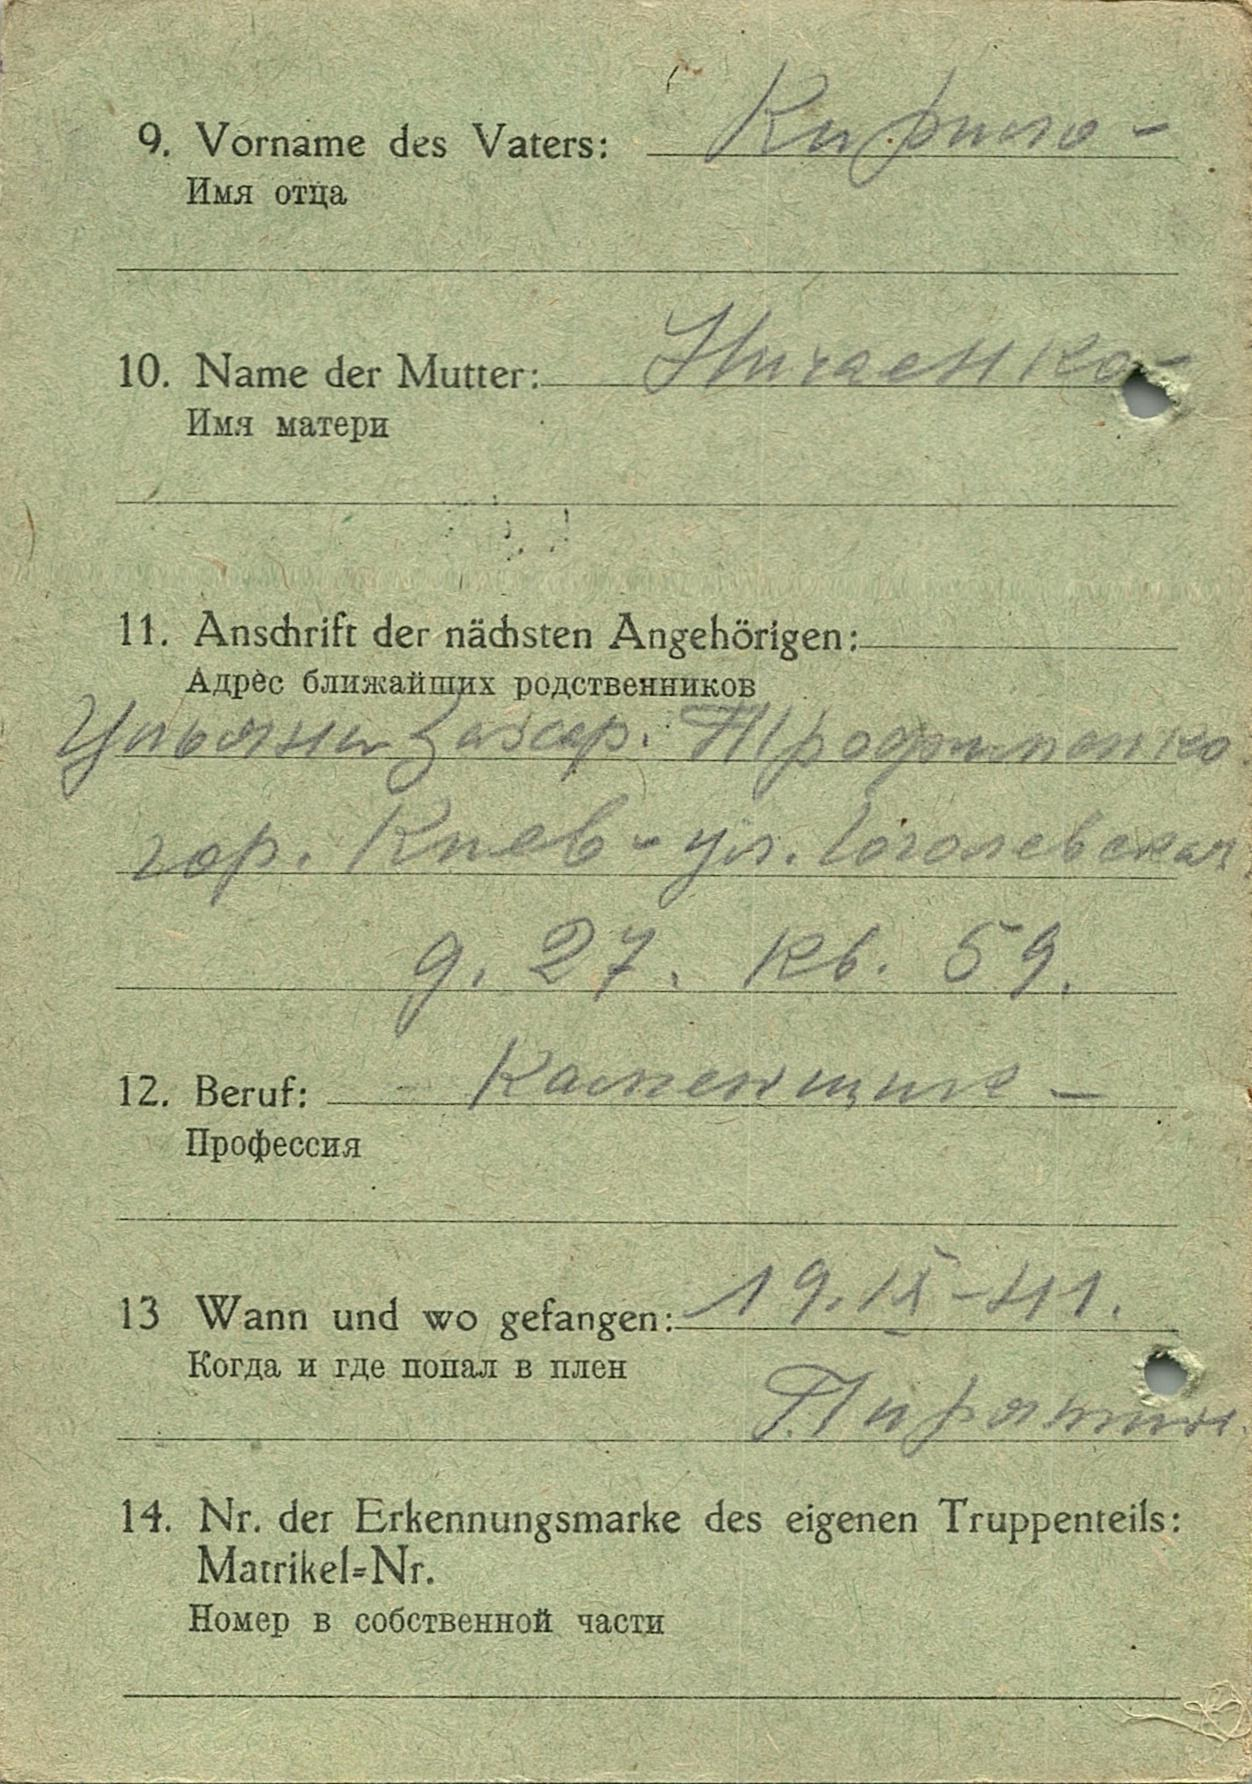 9. Vorname des Vaters: Кирило -
Имя отца
10. Name der Mutter: Ничаенко -
Имя матери
11. Anschrift der nächsten Angehörigen:
Адрес ближайших родственников
Ульяни Захар. Трофименко
гор. Киев - ул. Гоголевская.
д. 27. кв. 59.
12. Beruf: Каменщик -
Профессия
13 Wann und wo gefangen: 19.IX-41.
Когда и где попал в плен
Пирятин.
14. Nr. der Erkennungsmarke des eigenen Truppenteils:
Matrikel=Nr.
Номер в собственной части